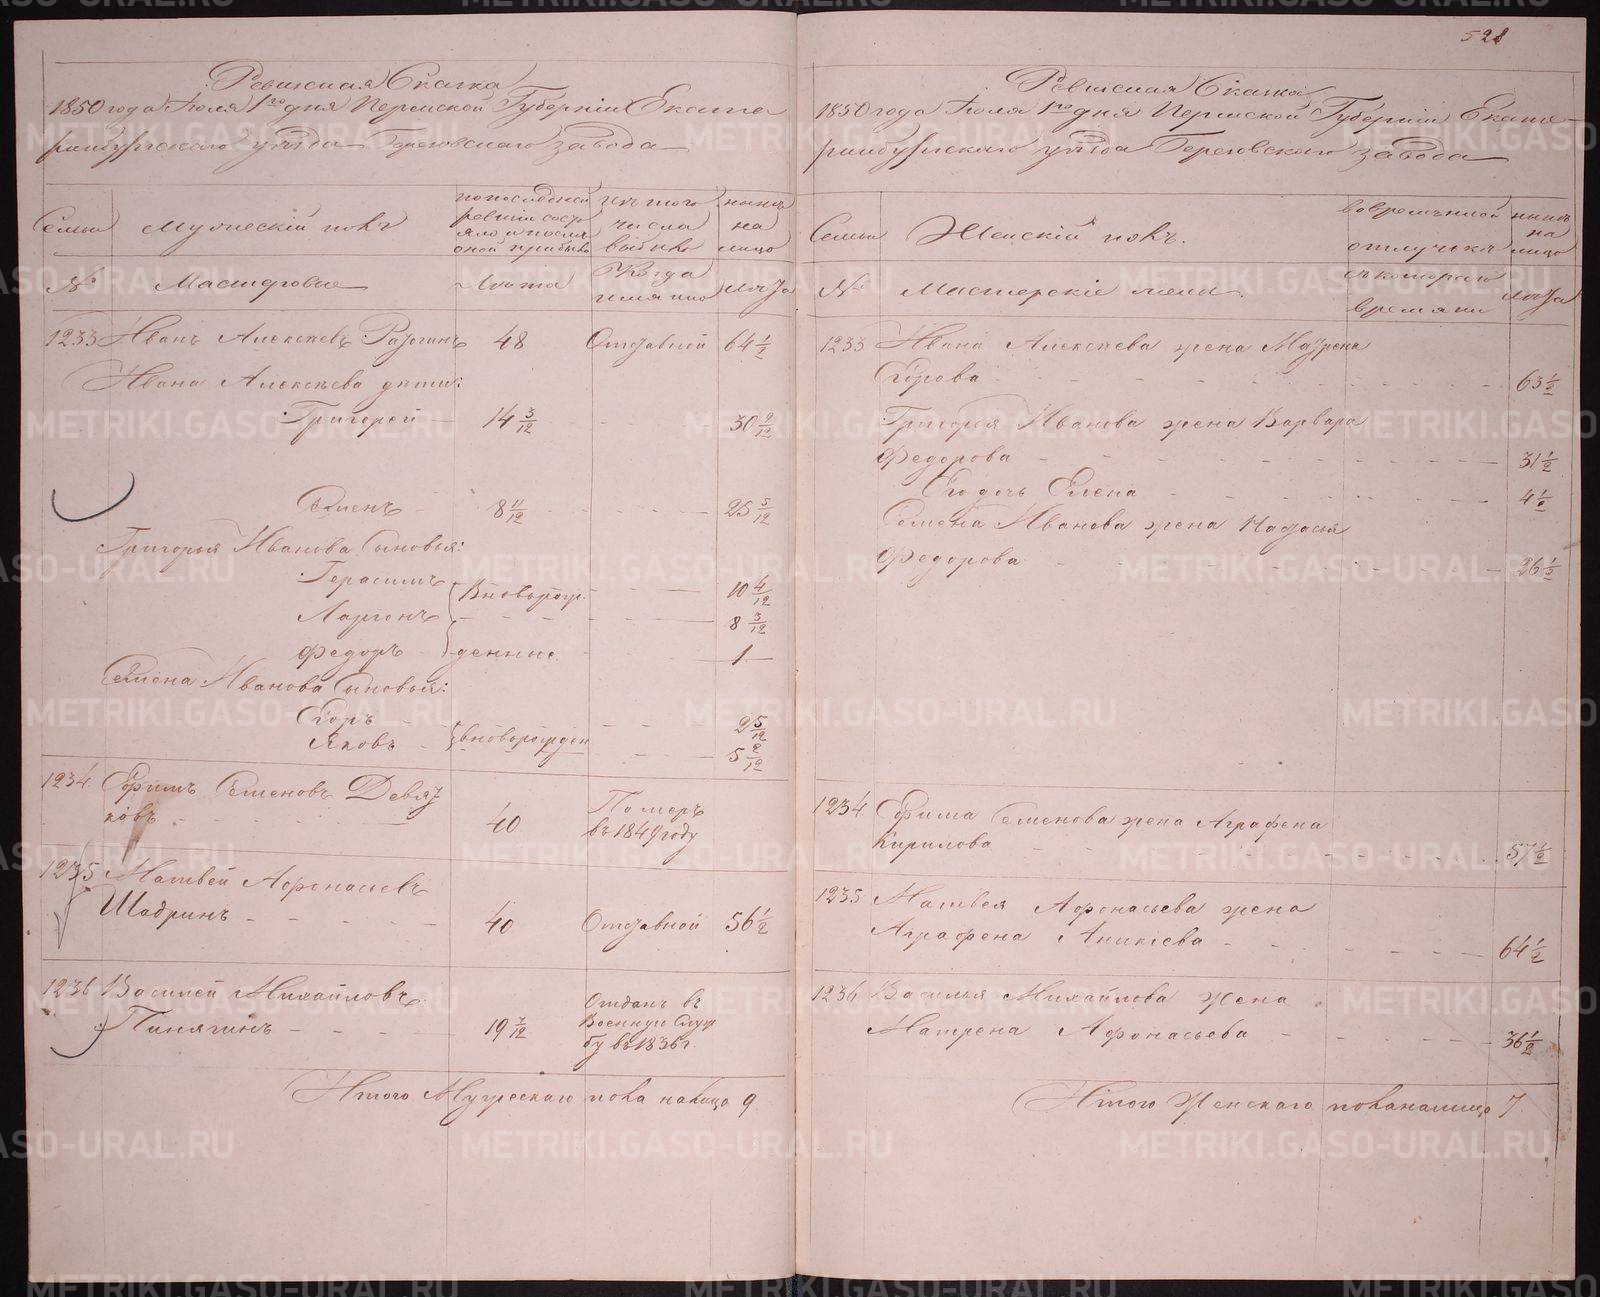 528
Ревизская Сказка
1850 года Июля 1го дня Пермской Губернии Екате
ринбургскаго уѣзда Березовскаго завода
Семьи
Мужескій полъ
по последней
ревизіи состо
яло и после
оной прибыло
изъ того
числа
выбыло
нынѣ
на
лицо
№
Мастеровые
Лѣта
Когда
имянно
Лѣта
1233 Иванъ Алексѣевъ 48 Отставной 64 1/2
Ивана Алексѣева дѣти:
Григорей 14 3/12 30 9/12
Семенъ 8 11/12 25 5/12
Григорья Иванова Сыновья:
Герасимъ 10 4/12
Ларіонъ Вноворож 8 3/12
Федоръ денные 1
Семена Иванова Сыновья:
Егоръ 2 5/12
Яковъ вноворожден 5 2/12
1234 Ефимъ Семеновъ Девят
ковъ 40 Померъ
въ 1849 году
1235 Матвей Афонасьевъ
Шадринъ 40 Отставной 56 1/2
1236 Василей Михайловъ
Пинягинъ 19 7/12 Отданъ въ
Военную Служ
бу въ 1836 г.
Итого Мужескаго пола налицо 9
Ревизская Сказка
1850 года Июля 1го дня Пермской Губерніи Екате
ринбургскаго уѣзда Березовскаго завода
Семьи
Женскій полъ.
во временной
отлучкѣ
нынѣ
на
лицо
№
Мастерскіе жены
съ котораго
времяни
Лѣта
1233 Ивана Алексѣева жена Матрена
Егорова 63 1/2
Григорья Иванова жена Варвара
Федорова 31 1/2
Его дочь Елена 4 1/2
Семена Иванова жена Настасья
Федорова 26 1/2
1234 Ефима Семенова жена Аграфена
Кирилова 57 1/2
1235 Матвея Афонасьева жена
Аграфена Аникіева 64 1/2
1236 Василья Михайлова жена
Матрена Афонасьева 36 1/2
Итого Женскаго пола налицо 7
METRIKI.GASO-URAL.RU